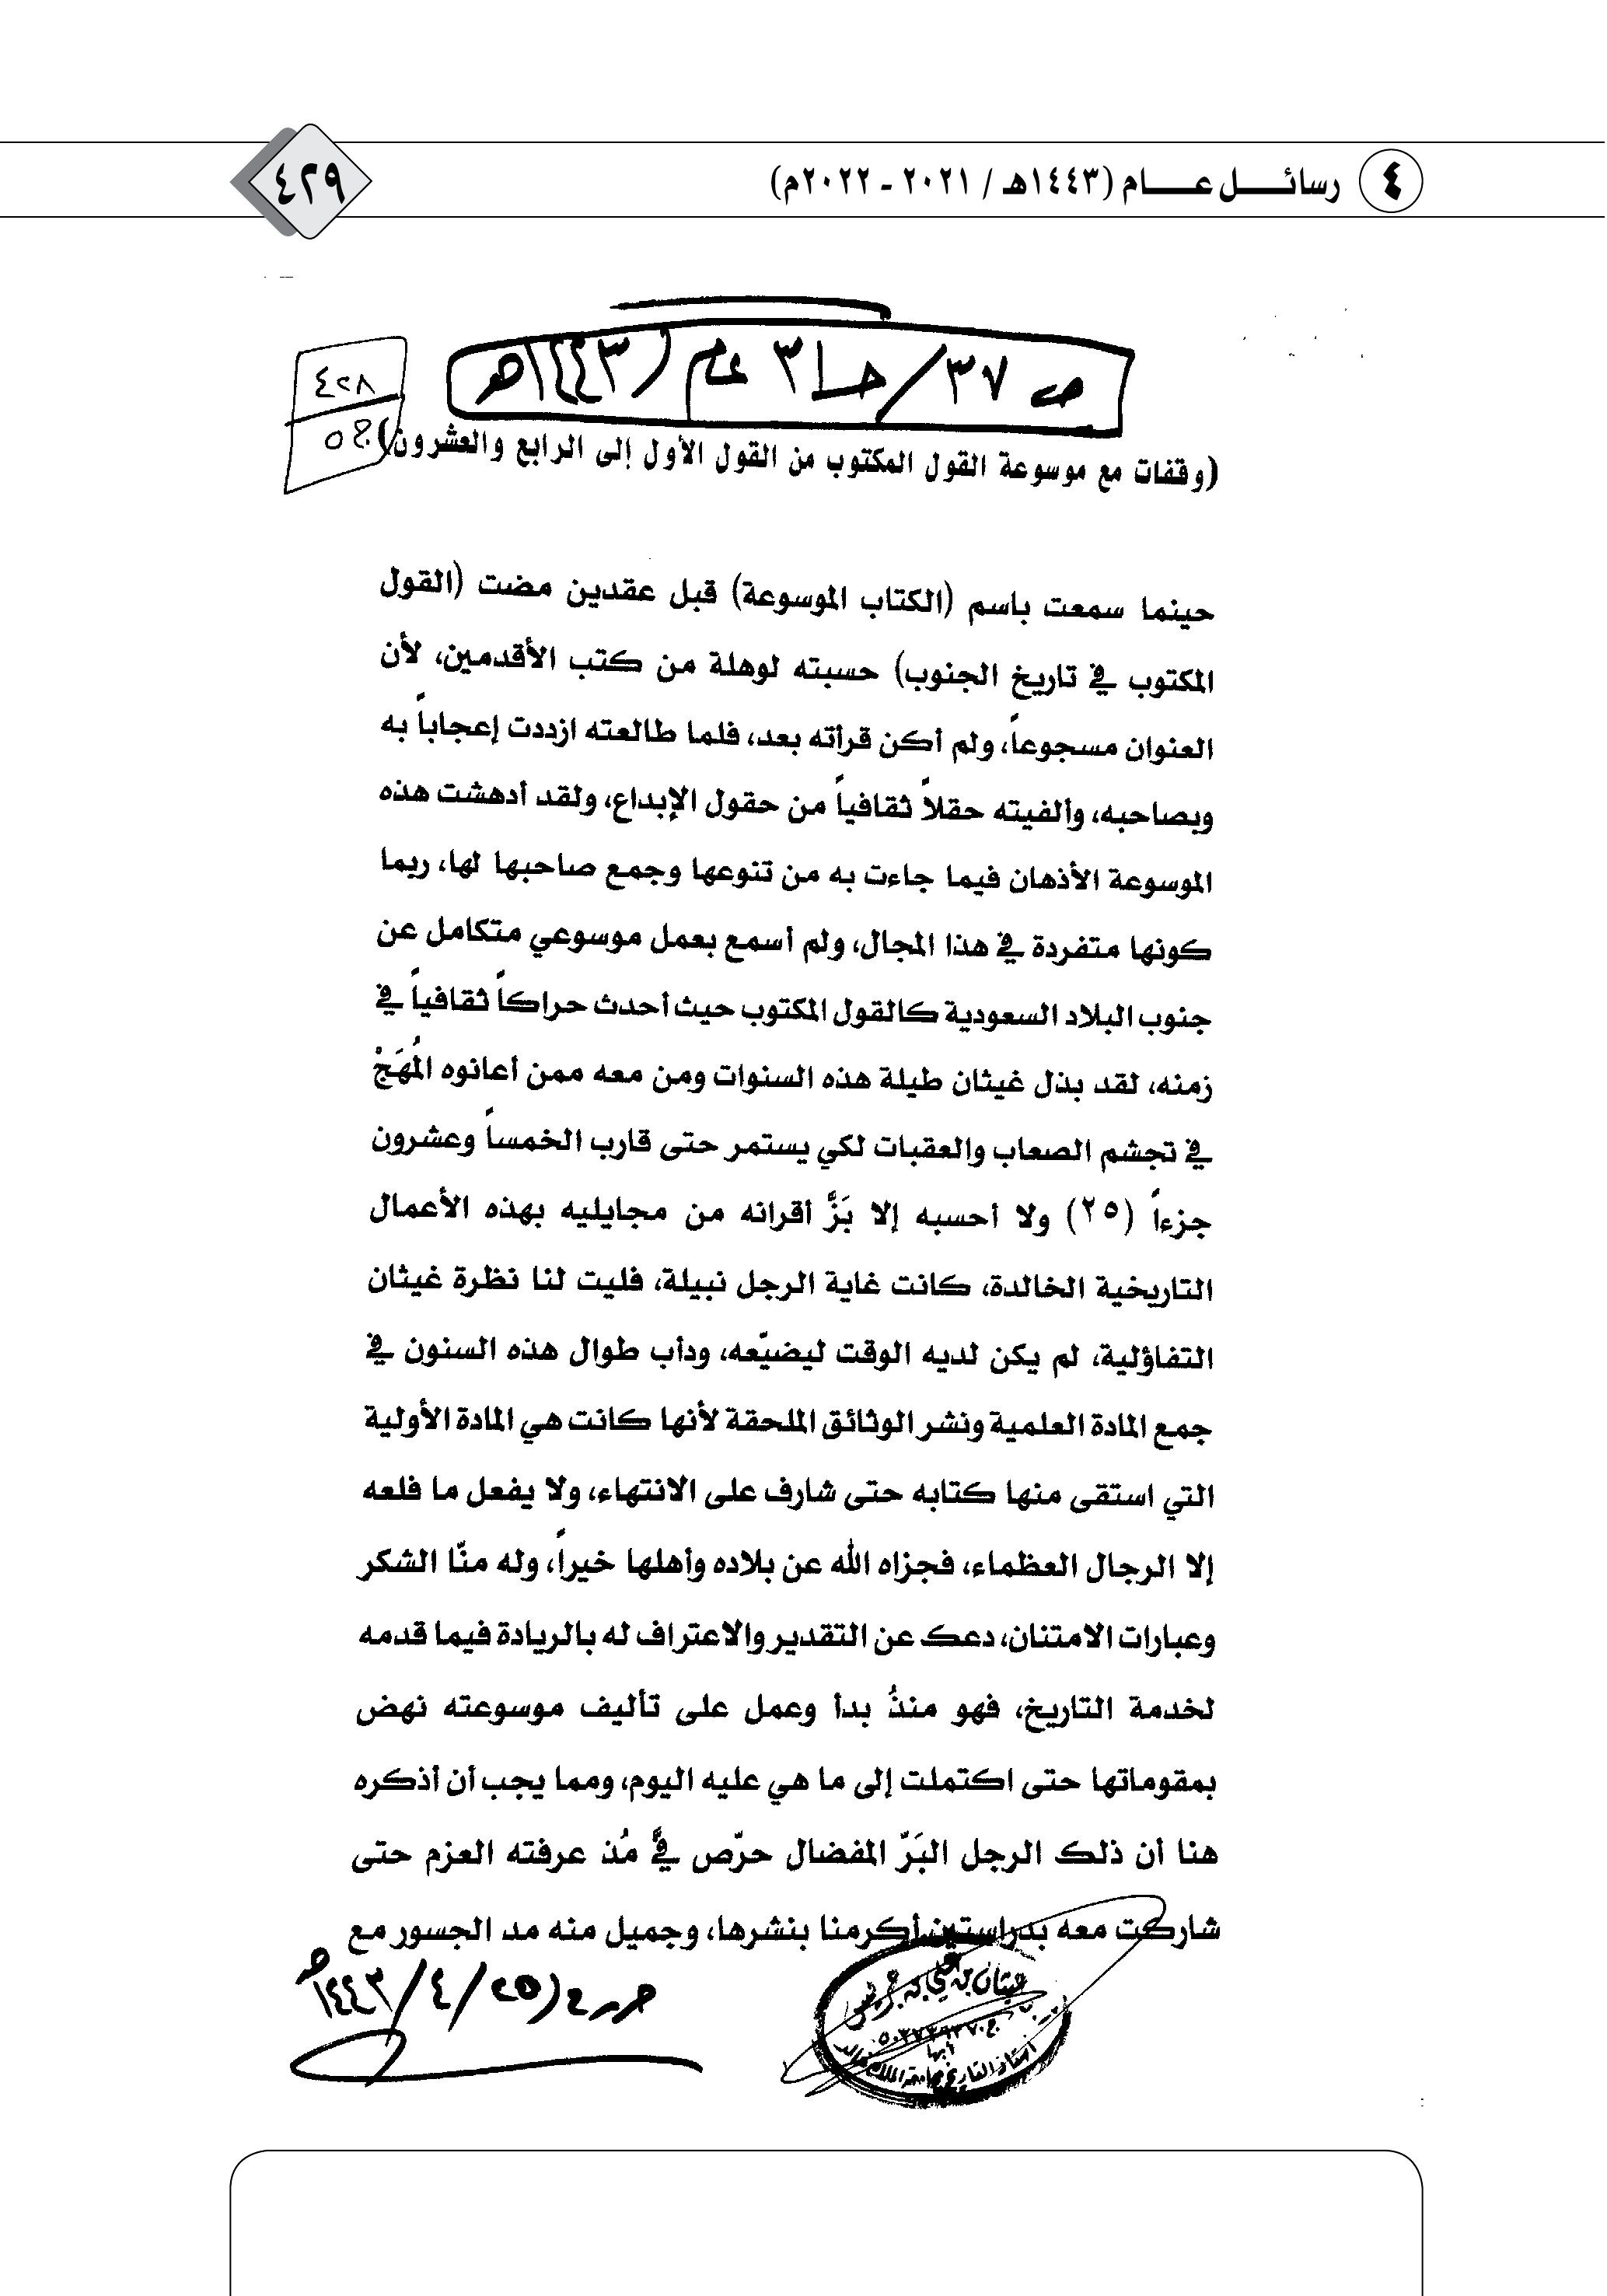 ٤ رسائل عام (١٤٤٣هـ / ٢٠٢١ - ٢٠٢٢م) ٤٢٩
ص ٣٧/حـ٣١ عام (١٤٤٣هـ
٤٢٨
(وقفات مع موسوعة القول المكتوب من القول الأول إلى الرابع والعشرون)
حينما سمعت باسم (الكتاب الموسوعة) قبل عقدين مضت (القول
المكتوب في تاريخ الجنوب) حسبته لوهلة من كتب الأقدمين، لأن
العنوان مسجوعاً، ولم أكن قرأته بعد، فلما طالعته ازددت إعجاباً به
وبصاحبه، وألفيته حقلاً ثقافياً من حقول الإبداع، ولقد أدهشت هذه
الموسوعة الأذهان فيما جاءت به من تنوعها وجمع صاحبها لها، ربما
كونها متفردة في هذا المجال، ولم أسمع بعمل موسوعي متكامل عن
جنوب البلاد السعودية كالقول المكتوب حيث أحدث حراكاً ثقافياً في
زمنه، لقد بذل غيثان طيلة هذه السنوات ومن معه ممن أعانوه المُهَجْ
في تجشم الصعاب والعقبات لكي يستمر حتى قارب الخمساً وعشرون
جزءاً (٢٥) ولا أحسبه إلا بَزَّ أقرانه من مجايليه بهذه الأعمال
التاريخية الخالدة، كانت غاية الرجل نبيلة، فليت لنا نظرة غيثان
التفاؤلية، لم يكن لديه الوقت ليضيّعه، ودأب طوال هذه السنون في
جمع المادة العلمية ونشر الوثائق الملحقة لأنها كانت هي المادة الأولية
التي استقى منها كتابه حتى شارف على الانتهاء، ولا يفعل ما فلعه
إلا الرجال العظماء، فجزاه الله عن بلاده وأهلها خيراً، وله منّا الشكر
وعبارات الامتنان، دعك عن التقدير والاعتراف له بالريادة فيما قدمه
لخدمة التاريخ، فهو منذُ بدأ وعمل على تأليف موسوعته نهض
بمقوماتها حتى اكتملت إلى ما هي عليه اليوم، ومما يجب أن أذكره
هنا أن ذلك الرجل البَرّ المفضال حرّص فيَّ مُذ عرفته العزم حتى
شاركت معه بدراستين أكرمنا بنشرها، وجميل منه مد الجسور مع
حرر في (٢٥/٤/١٤٤٣هـ
غيثان بن علي بن جريس
أبها
أستاذ التاريخ بجامعة الملك خالد